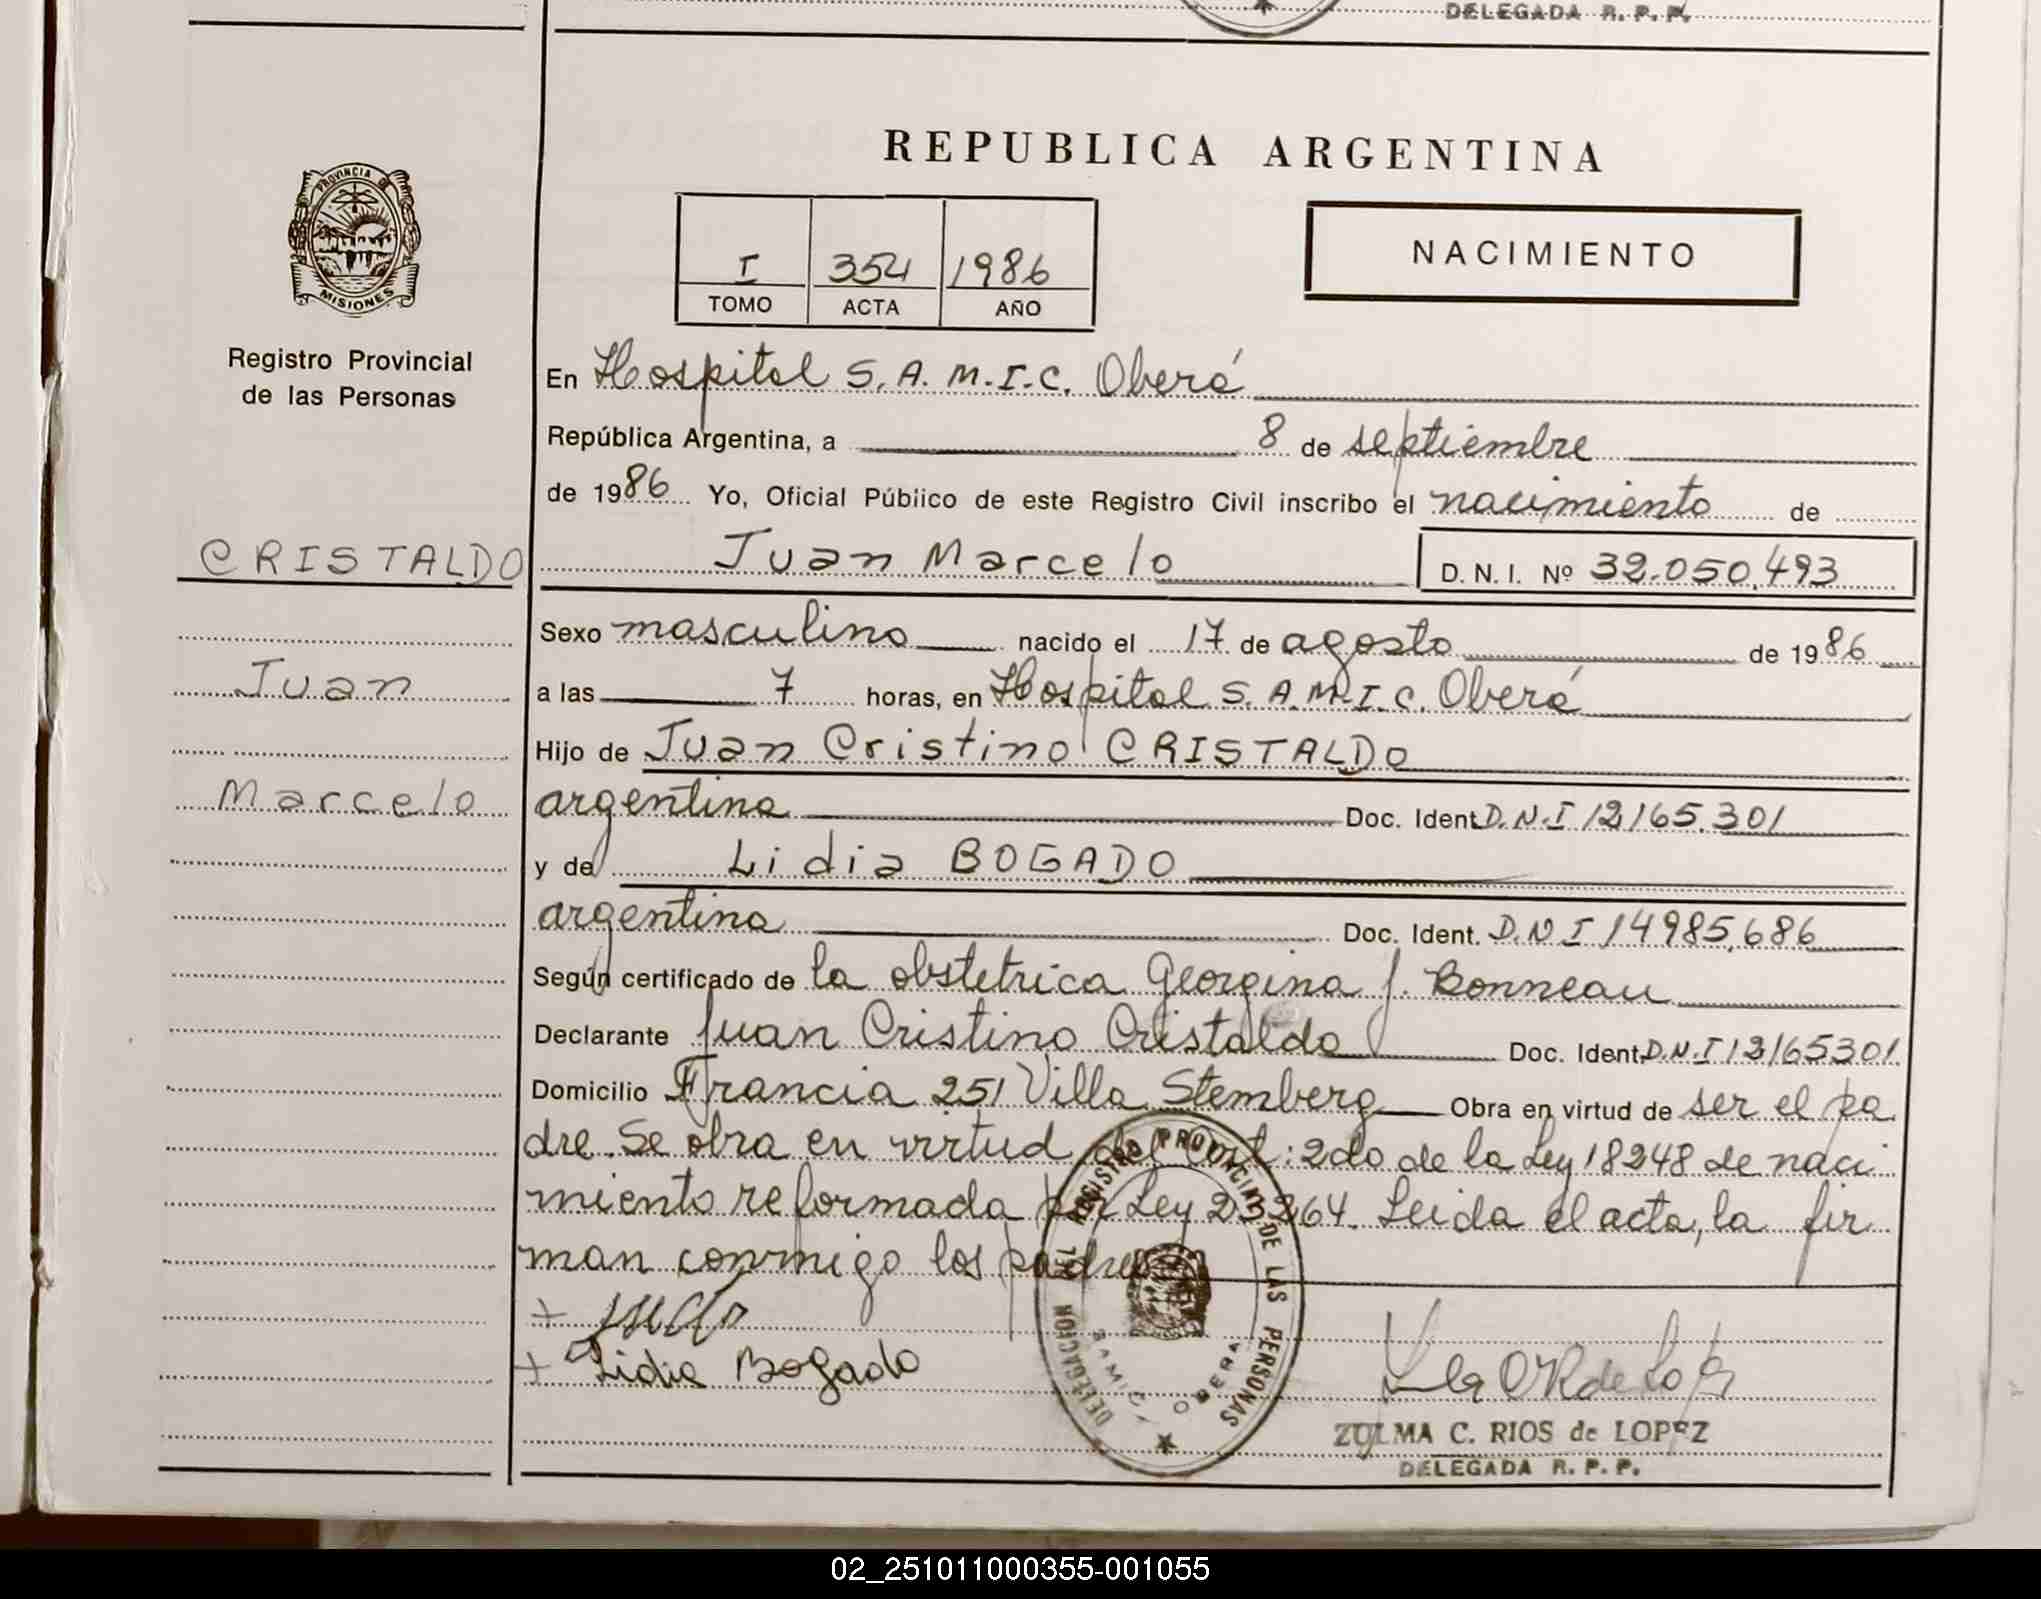 DELEGADA R. P. P.
REPUBLICA ARGENTINA
PROVINCIA DE
MISIONES
Registro Provincial
de las Personas
I 354 1986
TOMO ACTA AÑO
NACIMIENTO
En Hospital S. A. M. I. C. Oberá
República Argentina, a 8 de septiembre
de 1986 Yo, Oficial Público de este Registro Civil inscribo el nacimiento de
CRISTALDO
Juan Marcelo D. N. I. Nº 32.050.493
Sexo masculino nacido el 17 de agosto de 1986
Juan
a las 7 horas, en Hospital S. A. M. I. C. Oberá
Hijo de Juan Cristino CRISTALDO
Marcelo
argentina Doc. Ident. D.N.I 12165.301
y de Lidia BOGADO
argentina Doc. Ident. D.N I 14985.686
Según certificado de la obstetrica Georgina J. Bonneau
Declarante Juan Cristino Cristaldo Doc. Ident. D.N.I 12165301
Domicilio Francia 251 Villa Stemberg Obra en virtud de ser el pa
dre. Se obra en virtud del Art: 2do de la Ley 18248 de naci
miento reformada por Ley 23264. Leida el acta, la fir
man conmigo los padres
+
+ Lidia Bogado
REGISTRO PROVINCIAL DE LAS PERSONAS
DELEGACION
SAMIC OBERA
ZULMA C. RIOS de LOPEZ
DELEGADA R. P. P.
02_251011000355-001055